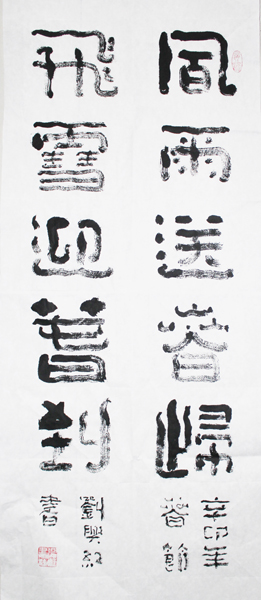 風雨送春歸
辛卯年
春節
飛雪迎春到
劉興
書